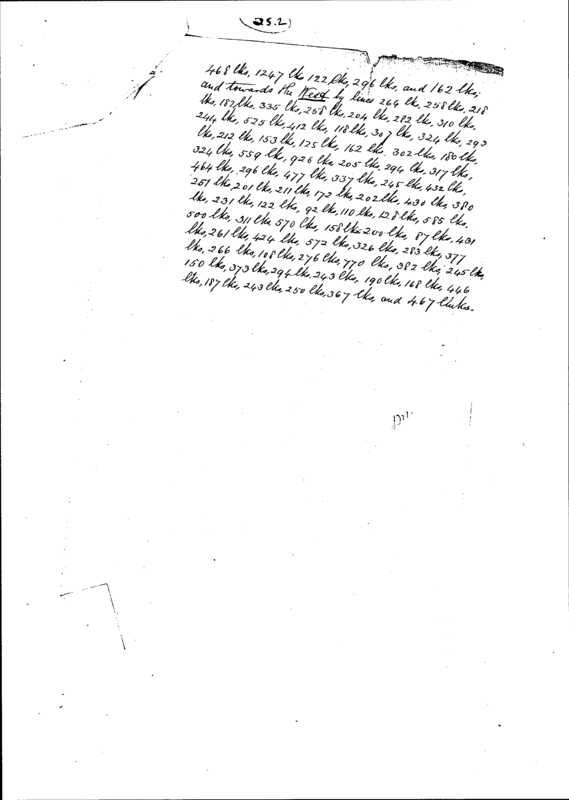 25.2
468 lks, 1247 lks 122 lks, 296 lks, and 162 lks;
and towards the West by lines 264 lks, 258 lks, 218
lks, 182 lks, 335 lks, 258 lks, 204 lks, 282 lks, 310 lks,
244 lks, 525 lks, 412 lks, 118 lks, 307 lks, 324 lks, 293
lks, 212 lks, 153 lks, 125 lks, 162 lks. 302 lks, 180 lks,
324 lks, 559 lks, 926 lks 205 lks. 294 lks, 317 lks,
464 lks, 296 lks, 477 lks, 337 lks, 245 lks, 432 lks,
251 lks, 201 lks, 211 lks, 172 lks, 202 lks, 430 lks, 380
lks, 231 lks, 122 lks, 92 lks, 110 lks, 128 lks, 585 lks,
500 lks, 311 lks 570 lks, 158 lks 200 lks, 87 lks, 431
lks, 261 lks, 424 lks, 572 lks, 326 lks, 283 lks, 377
lks, 266 lks, 108 lks, 276 lks, 770 lks, 382 lks, 245 lks,
150 lks, 373 lks, 294 lks, 243 lks, 190 lks, 168 lks, 446
lks, 187 lks, 243 lks, 250 lks, 367 lks, and 467 links.